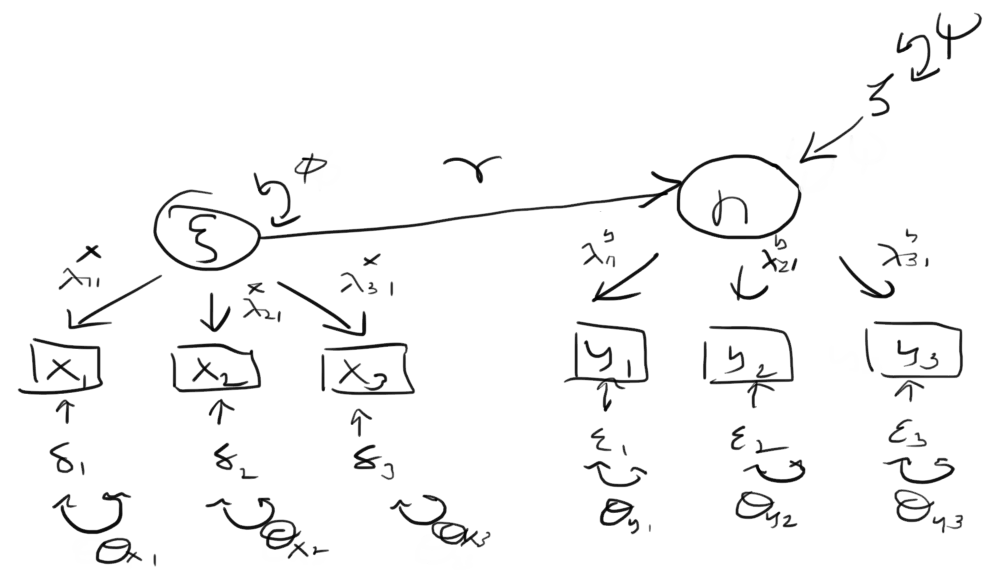 ψ
ζ
φ
γ
ξ
η
λ₁₁ˣ
λ₂₁ˣ
λ₃₁ˣ
λ₁₁ʸ
λ₂₁ʸ
λ₃₁ʸ
x₁ x₂ x₃ y₁ y₂ y₃
δ₁ δ₂ δ₃ ε₁ ε₂ ε₃
θx₁ θx₂ θx₃ θy₁ θy₂ θy₃